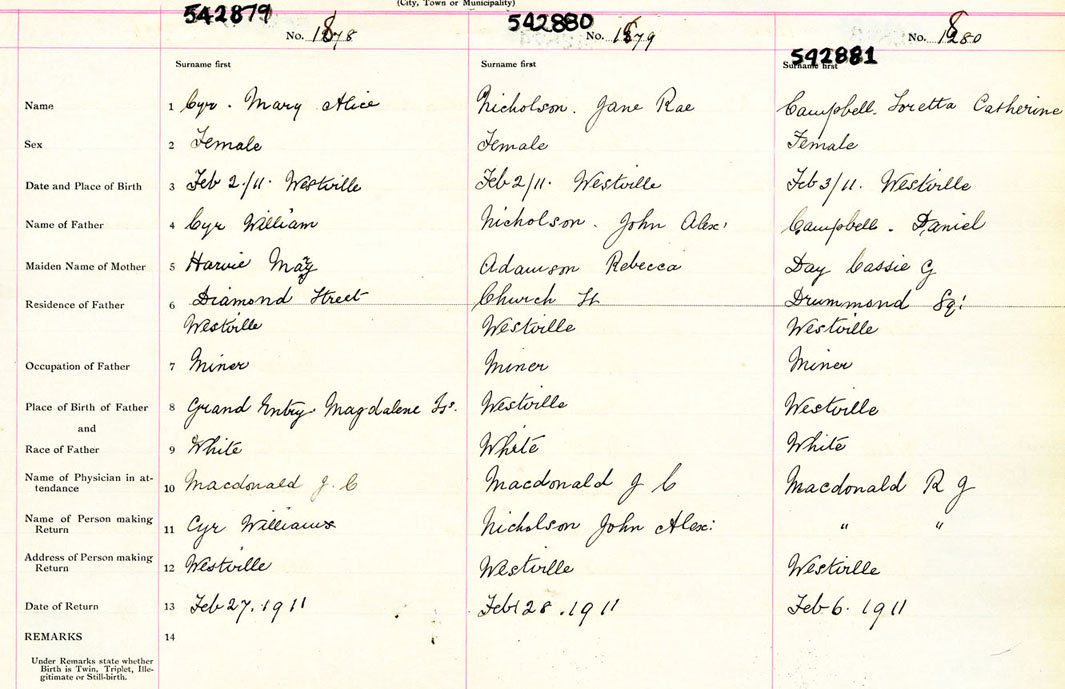 (City, Town or Municipality)
542879 542880 542881
No. 1878 No. 1879 No. 1880
Surname first Surname first Surname first
Name 1 Cyr. Mary Alice Nicholson. Jane Rae Campbell. Loretta Catherine
Sex 2 Female Female Female
Date and Place of Birth 3 Feb 2/11. Westville Feb 2/11. Westville Feb 3/11. Westville
Name of Father 4 Cyr William Nicholson. John Alex: Campbell. Daniel
Maiden Name of Mother 5 Harvie May Adamson Rebecca Day Cassie G
Residence of Father 6 Diamond Street Church St Drummond Sq:
Westville Westville Westville
Occupation of Father 7 Miner Miner Miner
Place of Birth of Father 8 Grand Entry. Magdalene Is. Westville Westville
and
Race of Father 9 White White White
Name of Physician in at-
tendance 10 Macdonald J. C Macdonald J C Macdonald R G
Name of Person making
Return 11 Cyr William Nicholson John Alex: " "
Address of Person making
Return 12 Westville Westville Westville
Date of Return 13 Feb 27. 1911 Feb 28. 1911 Feb 6. 1911
REMARKS 14
Under Remarks state whether
Birth is Twin, Triplet, Ille-
gitimate or Still-birth.